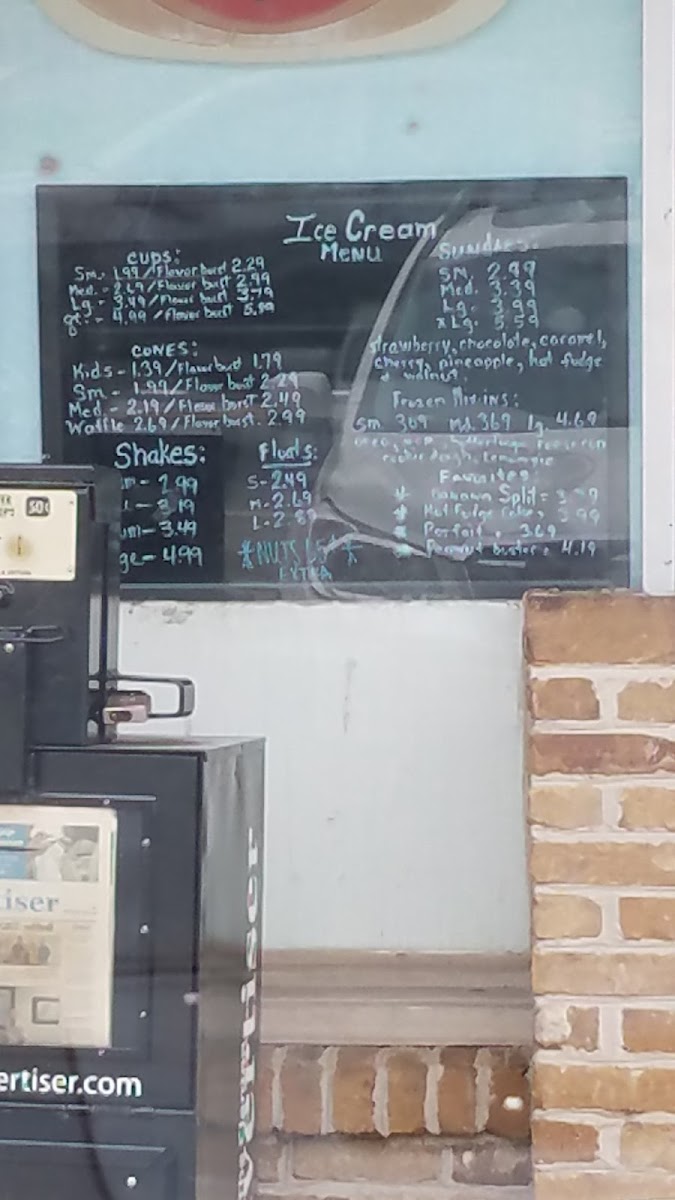 Ice Cream
MENU
CUPS:
Sm. - 1.99 / Flavor burst 2.29
Med. - 2.69 / Flavor burst 2.99
Lg. - 3.49 / Flavor burst 3.79
qt. - 4.99 / Flavor burst 5.59
CONES:
Kids - 1.39 / Flavor burst 1.79
Sm - 1.99 / Flavor burst 2.29
Med. - 2.19 / Flavor burst 2.49
Waffle 2.69 / Flavor burst. 2.99
Shakes:
- 2.99
- 3.19
um - 3.49
ge - 4.99
Floats:
S - 2.49
M - 2.69
L - 2.89
*NUTS *
EXTRA
SUNDAES:
SM. 2.99
Med. 3.39
Lg. 3.99
XLg. 5.59
strawberry, chocolate, caramel,
cherry, pineapple, hot fudge
& walnut.
Frozen Mixins:
Sm 309 Md. 369 lg. 4.69
cookie dough,
Favorites:
* Banana Split =
* Hot Fudge Cake, 3.99
* Parfait, 369
* Peanut buster = 4.19
50¢
iser
ertiser.com
vertiser